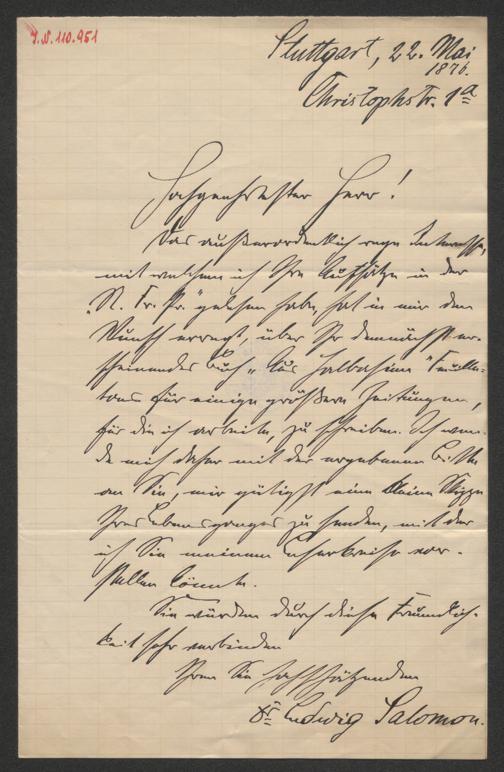 J.N. 110.951
Stuttgart, 22. Mai
1876.
Christophstr. 1a
Hochgeehrtester Herr!
Das außerordentlich rege Interesse,
mit welchem ich Ihre Aufsätze in der
„N. Fr. Pr." gelesen habe, hat in mir den
Wunsch erregt, über Ihr demnächst er-
scheinendes Buch „Aus Halbasien" Feuille-
tons für einige größere Zeitungen,
für die ich arbeite, zu schreiben. Ich wen-
de mich daher mit der ergebenen Bitte
an Sie, mir gütigst eine kleine Skizze
Ihres Lebensganges zu senden, mit der
ich Sie meinem Leserkreise vor-
stellen könnte.
Sie würden durch diese Freundlich-
keit sehr verbinden
Ihren Sie hochschätzenden
Dr. Ludwig Salomon.